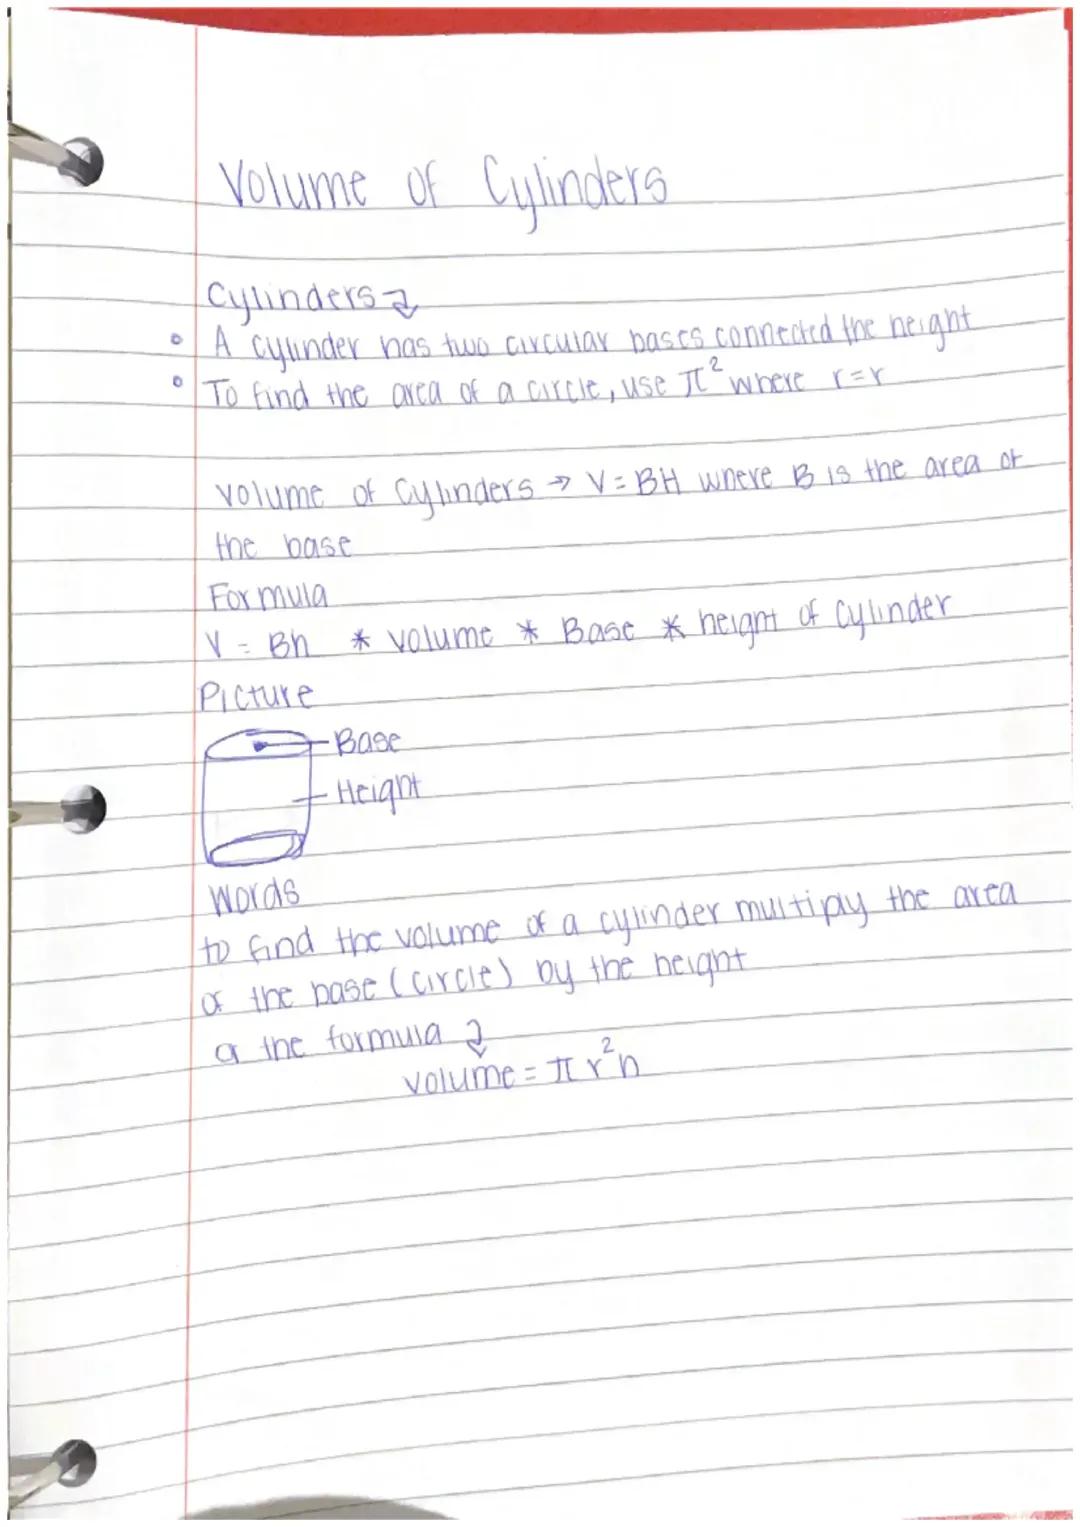 Volume of Cylinders
Cylinders
• A cylinder has two circular bases connected the height
• To find the area of a circle, use π² where r=r
Volume of Cylinders → V=BH where B is the area of
the base
Formula
V = Bh * volume * Base * height of cylinder
Picture
Base
Height
Words
to find the volume of a cylinder multiply the area
of the base (circle) by the height
or the formula
volume = π r²h